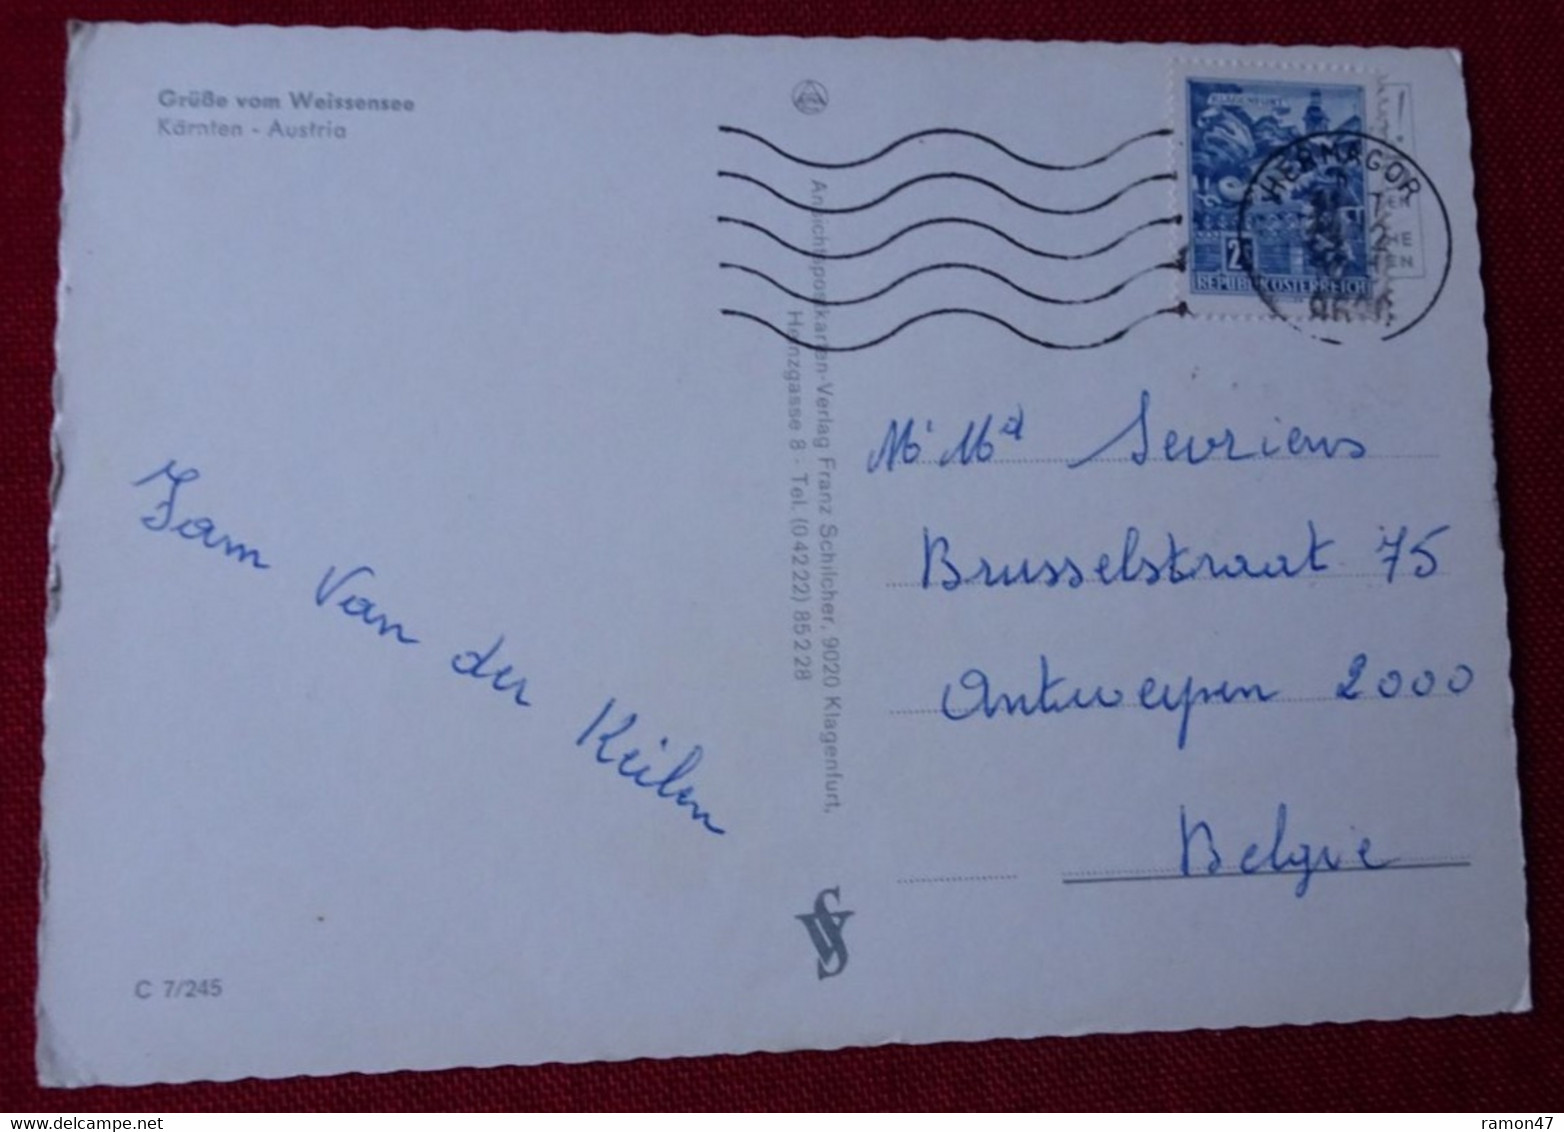 Grüße vom Weissensee
Kärnten - Austria
KLAGENFURT
2
REPUBLIK ÖSTERREICH
HERMAGOR
!
HE
Ansichtspostkarten-Verlag Franz Schilcher, 9020 Klagenfurt,
Heinzgasse 8 - Tel. (04222) 85228
Mr Md Sevriens
Brusselstraat 75
Antwerpen 2000
Belgie
Fam Van der Keilen
C 7/245
delcampe.net
ramon47